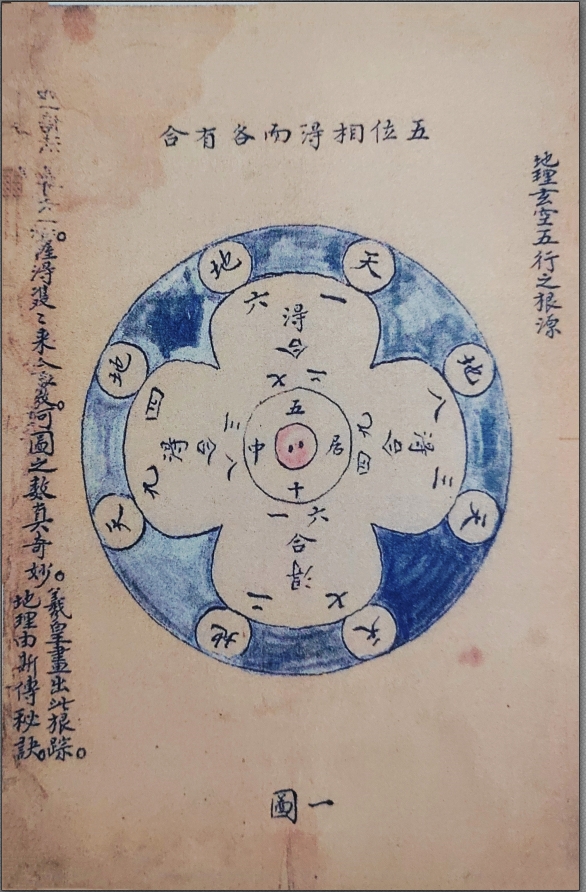 五位相得而各有合
地理玄空五行之根源
天
地
天
天
地
天
地
地
一六
得
合
二七
八三
得
合
九四
六一
合
得
七二
四九
得
合
三八
五
居
十
中
圖之數真奇妙。羲皇畫出此根踪。
地理由斯傳秘訣。
圖一